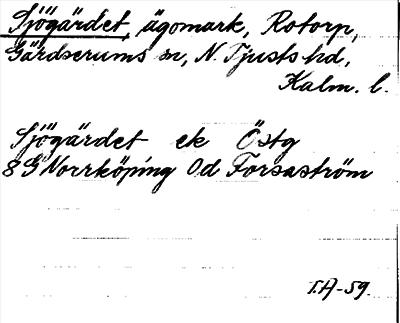 Sjögärdet, ägomark, Rotorp,
Gärdserums sn, N. Tjusts hd,
Kalm. l.
Sjögärdet ek Östg
8 G Norrköping Od Forsaström
T.A-59.